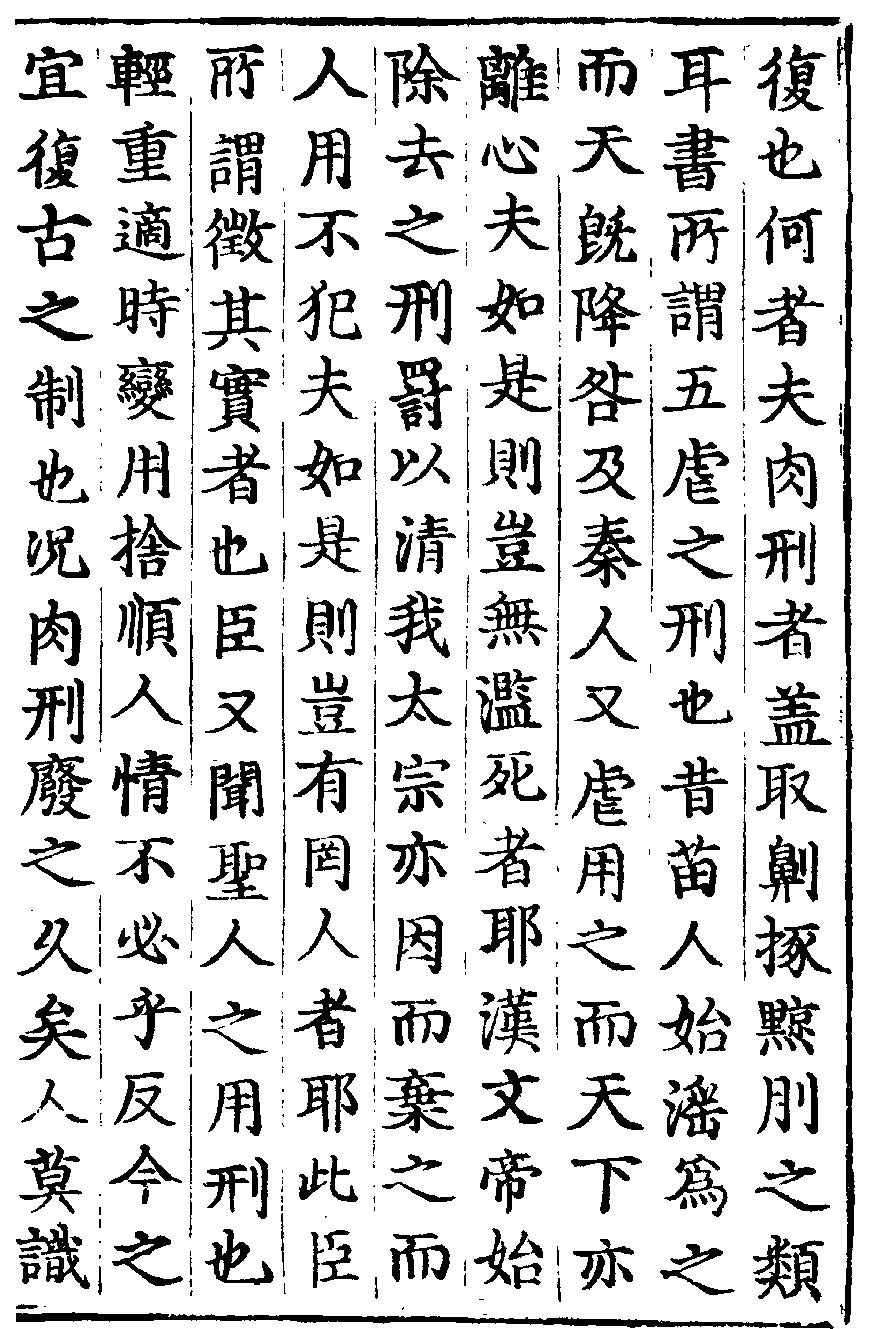 復也何者夫肉刑者盖取劓椓黥刖之類
耳書所謂五虐之刑也昔苗人始滛爲之
而天旣降咎及秦人又虐用之而天下亦
離心夫如是則豈無濫死者耶漢文帝始
除去之刑罸以清我太宗亦因而棄之而
人用不犯夫如是則豈有罔人者耶此臣
所謂徵其實者也臣又聞聖人之用刑也
輕重適時變用捨順人情不必乎反今之
宜復古之制也况肉刑廢之久矣人莫識